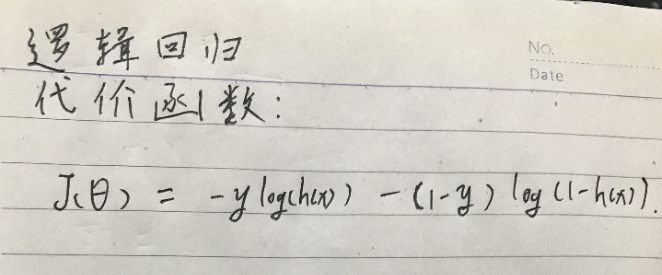 逻辑回归
No.
Date
代价函数:
J(θ) = -y log(h(x)) - (1-y) log(1-h(x)).